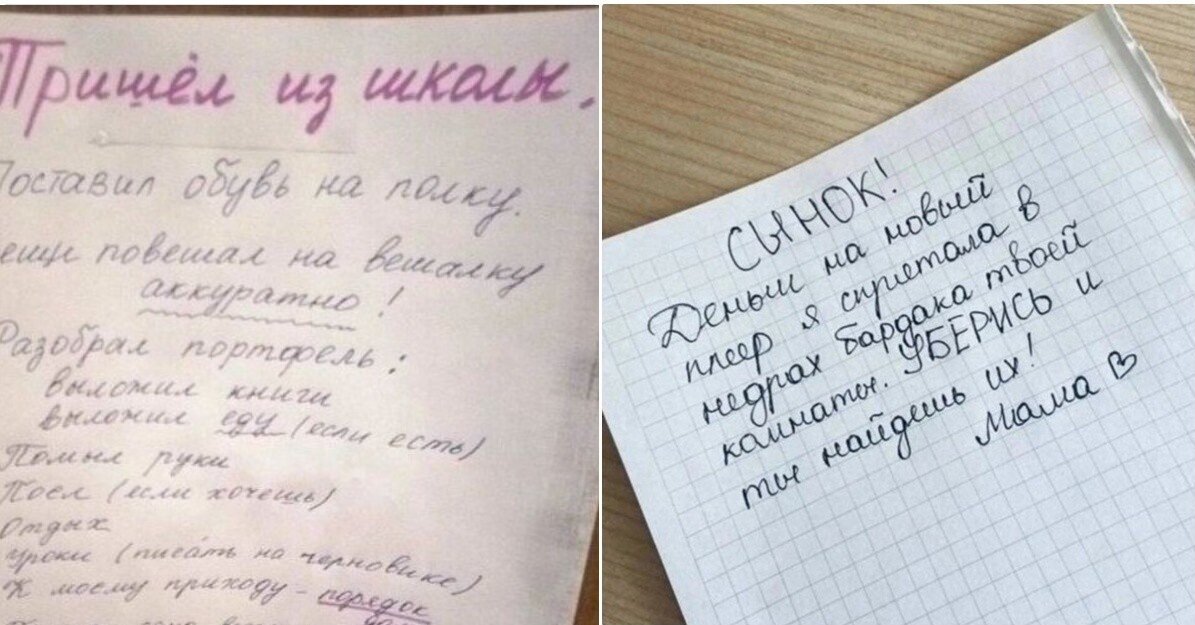 Пришёл из школы.
Поставил обувь на полку.
вещи повешал на вешалку
аккуратно!
Разобрал портфель:
выложил книги
выложил еду (если есть)
Помыл руки
Поел (если хочешь)
Отдых
уроки (писать на черновике)
К моему приходу - порядок
СЫНОК!
Деньги на новый
плеер я спрятала в
недрах бардака твоей
комнаты. УБЕРИСЬ и
ты найдешь их!
Мама